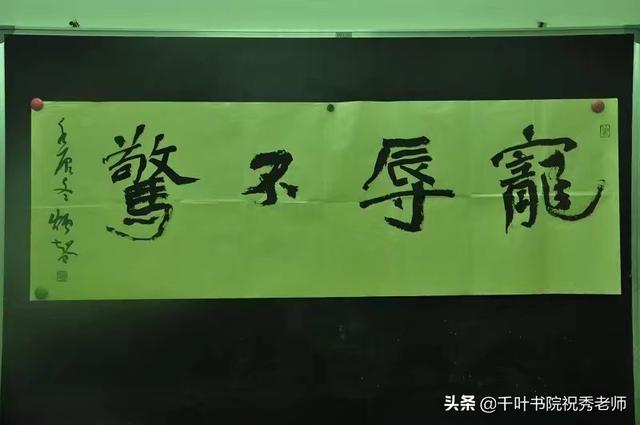 寵辱不驚
头条 @千叶书院祝秀老师